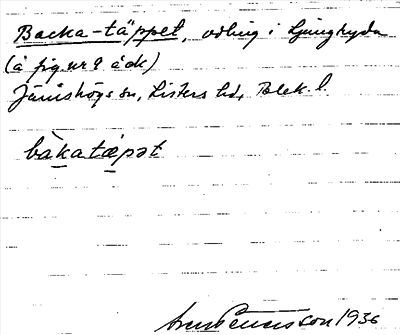 Backa-täppet, odling i Ljungryda
(å fig. nr 9 å ék)
Jämshögs sn, Listers hd, Blek. l.
bàkatæpət
Pettersson 1936